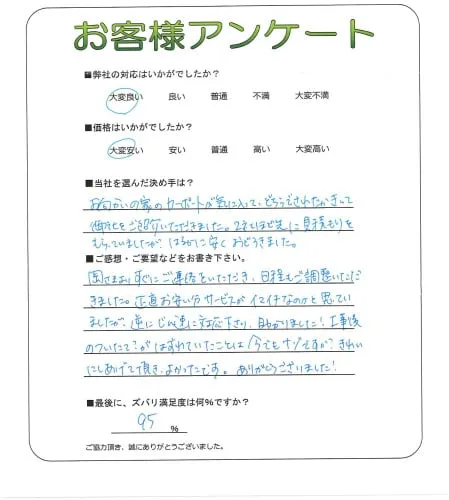 お客様アンケート
■弊社の対応はいかがでしたか？
大変良い 良い 普通 不満 大変不満
■価格はいかがでしたか？
大変安い 安い 普通 高い 大変高い
■当社を選んだ決め手は？
お向かいの家のカーポートが気に入って、どちらでされたかきいて
御社をご紹介いただきました。2社ほど先に見積もりを
もらっていましたが、はるかに安くおどろきました。
■ご感想・ご要望などをお書き下さい。
すぐにご連絡をいただき、日程もご調整いただ
きました。正直お安い分サービスがイマイチなのかと思ってい
ましたが、逆にじん速に対応下さり、助かりました！工事後
のついたてが はずれていたことは 今でもナゾですが？きれい
にしあげて頂き、よかったです。ありがとうございました！
■最後に、ズバリ満足度は何%ですか？
95 %
ご協力頂き、誠にありがとうございました。